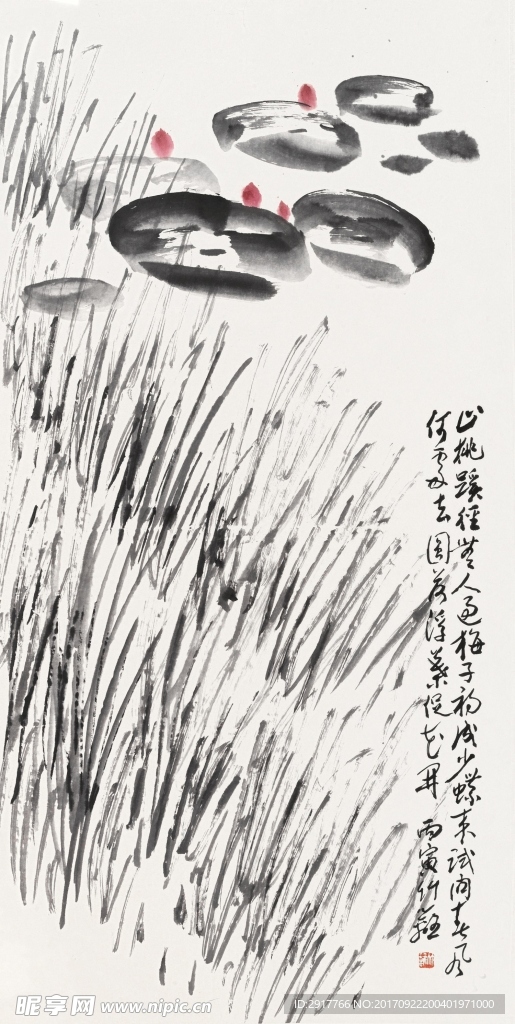 山桃蹊徑無人過梅子初成少蝶来試问春风
何處去圆荷浮葉促花開 丙寅竹
昵享网 www.nipic.cn
ID:2917766 NO:20170922200401971000